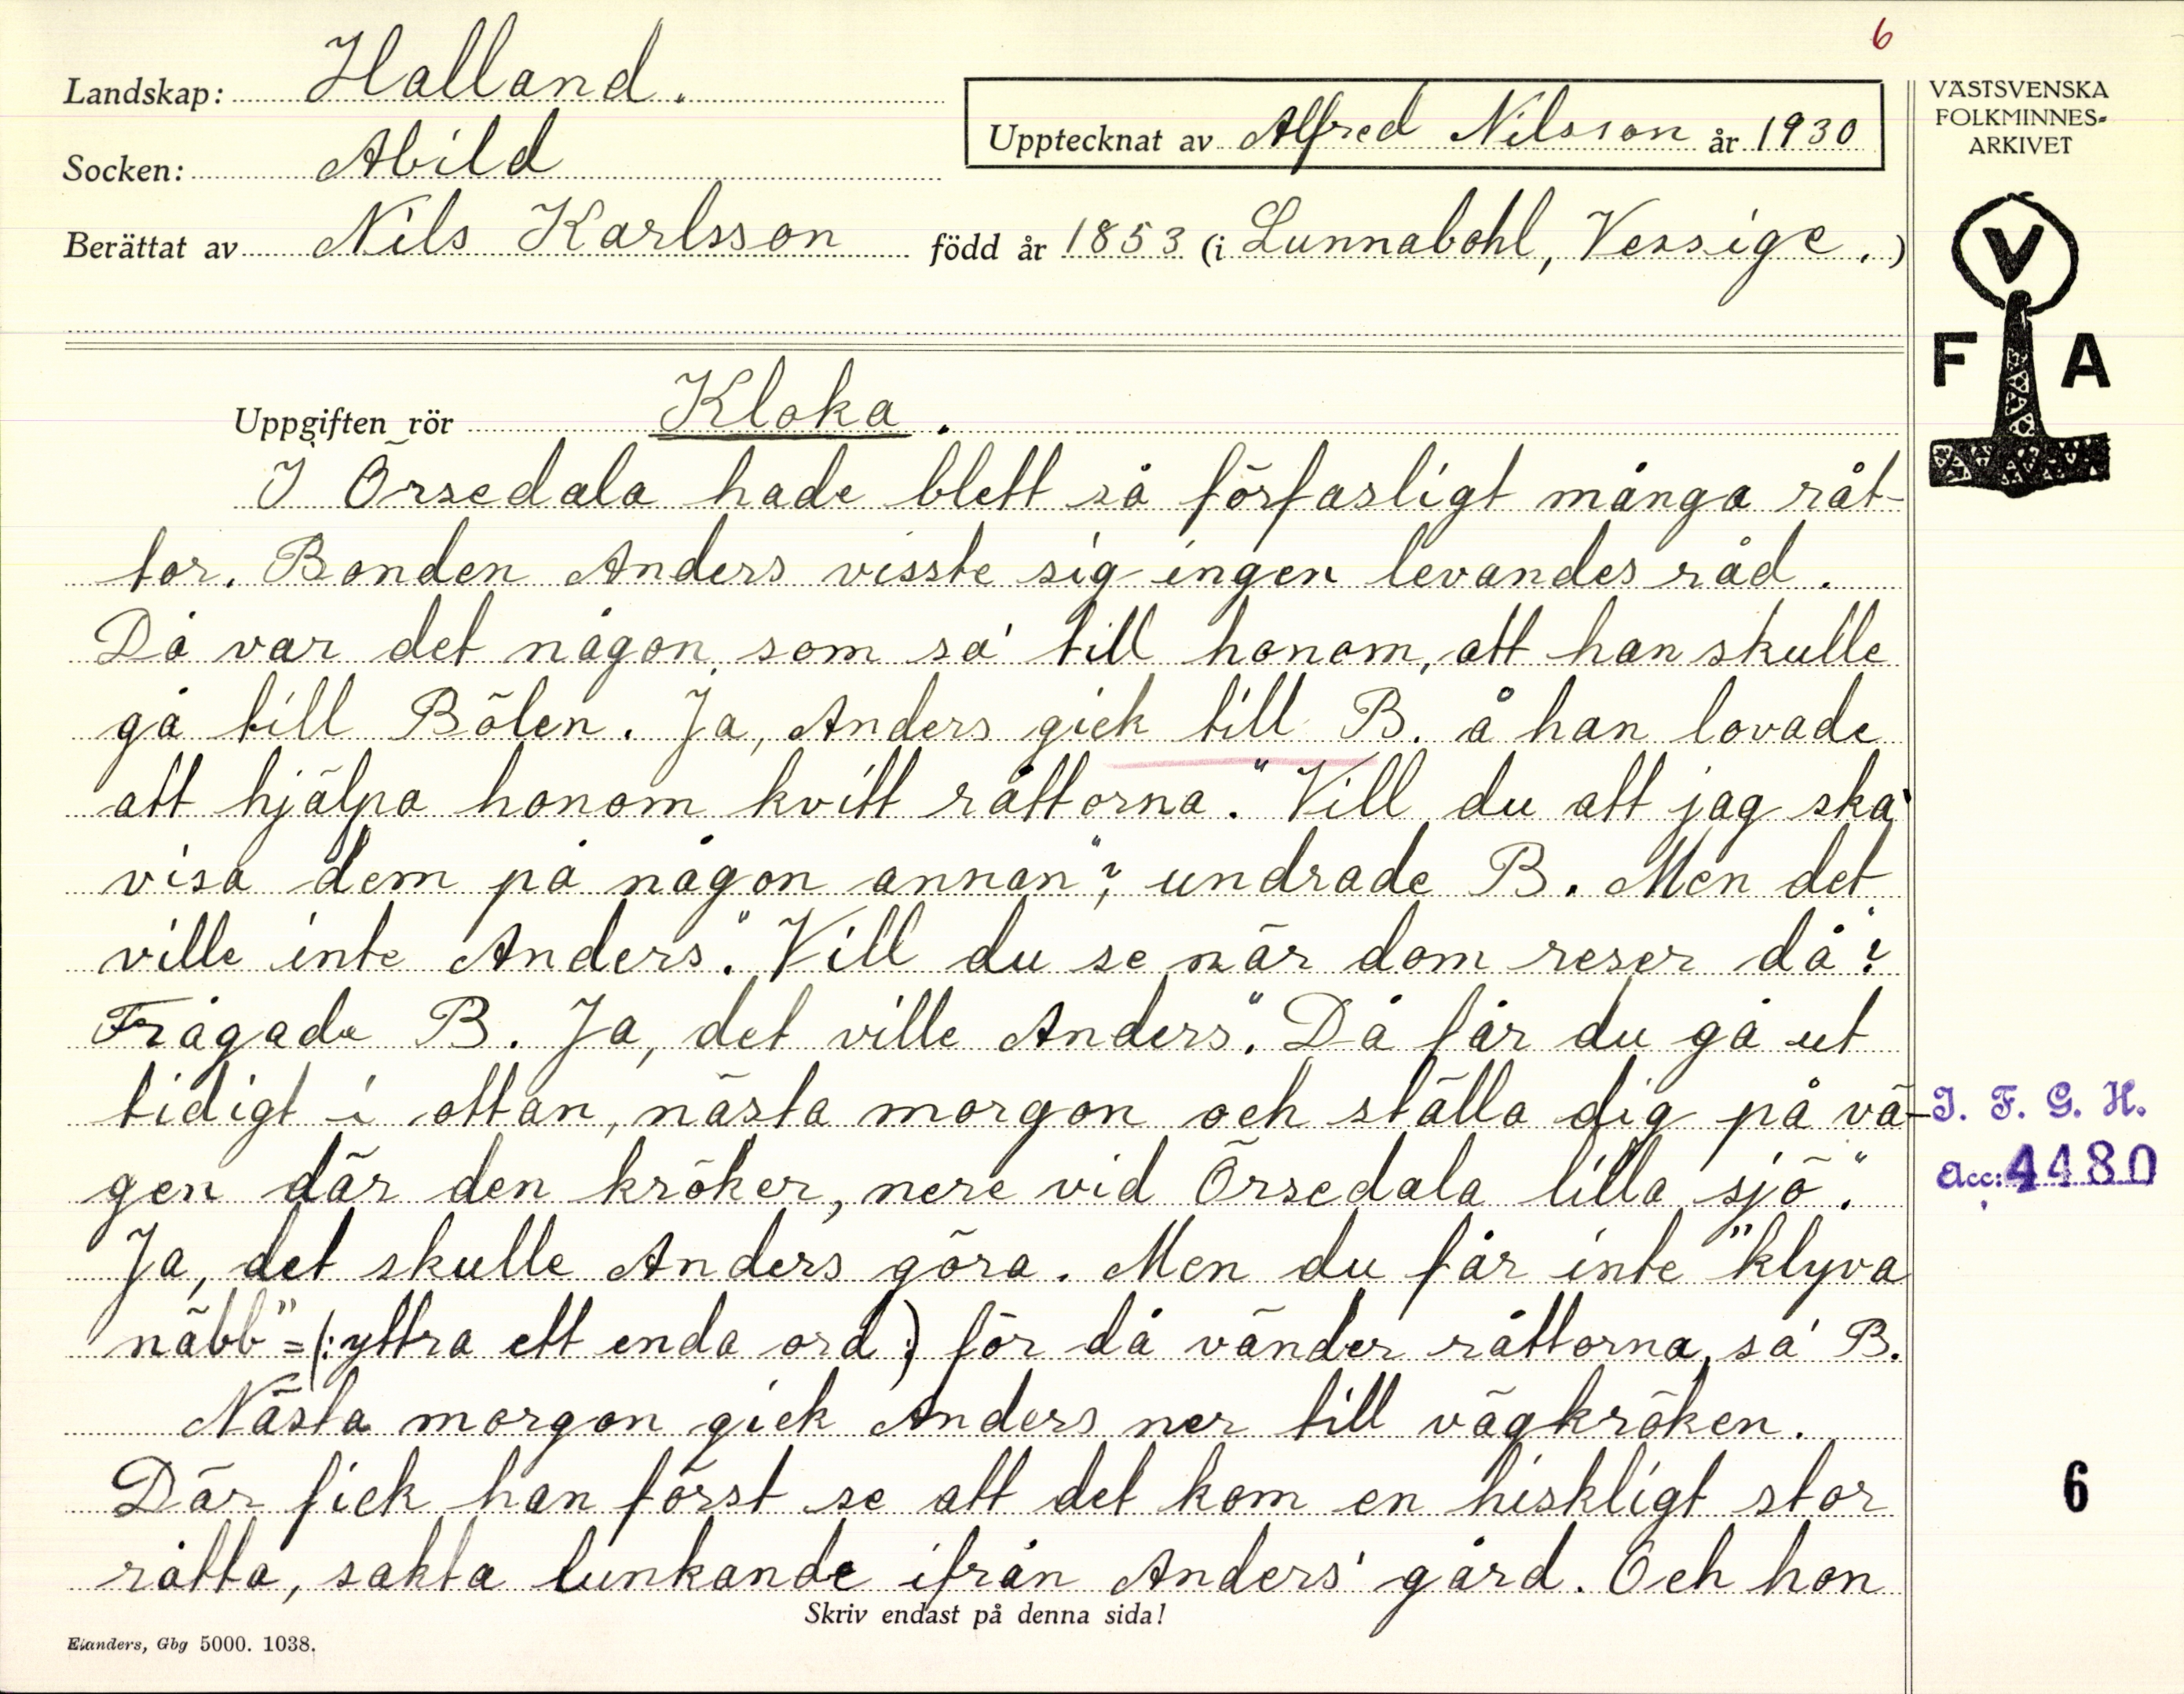 6
Landskap: Halland.
Upptecknat av Alfred Nilsson år 1930
VÄSTSVENSKA
FOLKMINNES-
ARKIVET
Socken: Abild
Berättat av Nils Karlsson född år 1853 (i Lunnabohl, Vessige.)
V
F A
Uppgiften rör Kloka.
I Örsedala hade blett så förfasligt många råt-
tor. Bonden Anders visste sig ingen levandes råd.
Då var det någon som sa' till honom, att han skulle
gå till Bölen. Ja, Anders gick till B. å han lovade
att hjälpa honom kvitt råttorna. "Vill du att jag ska'
visa dem på någon annan"? undrade B. Men det
ville inte Anders. "Vill du se när dom reser då"?
Frågade B. Ja, det ville Anders. "Då får du gå ut
tidigt i ottan, nästa morgon och ställa dig på vä-
gen där den kröker, nere vid Örsedala lilla sjö."
Ja, det skulle Anders göra. Men du får inte "klyva
näbb" = (: yttra ett enda ord :) för då vänder råttorna, sa' B.
Nästa morgon gick Anders ner till vägkröken.
Där fick han först se att det kom en hiskligt stor
råtta, sakta lunkande ifrån Anders' gård. Och hon
I. F. G. H.
Acc: 4480
6
Skriv endast på denna sida!
Elanders, Gbg 5000. 1038.